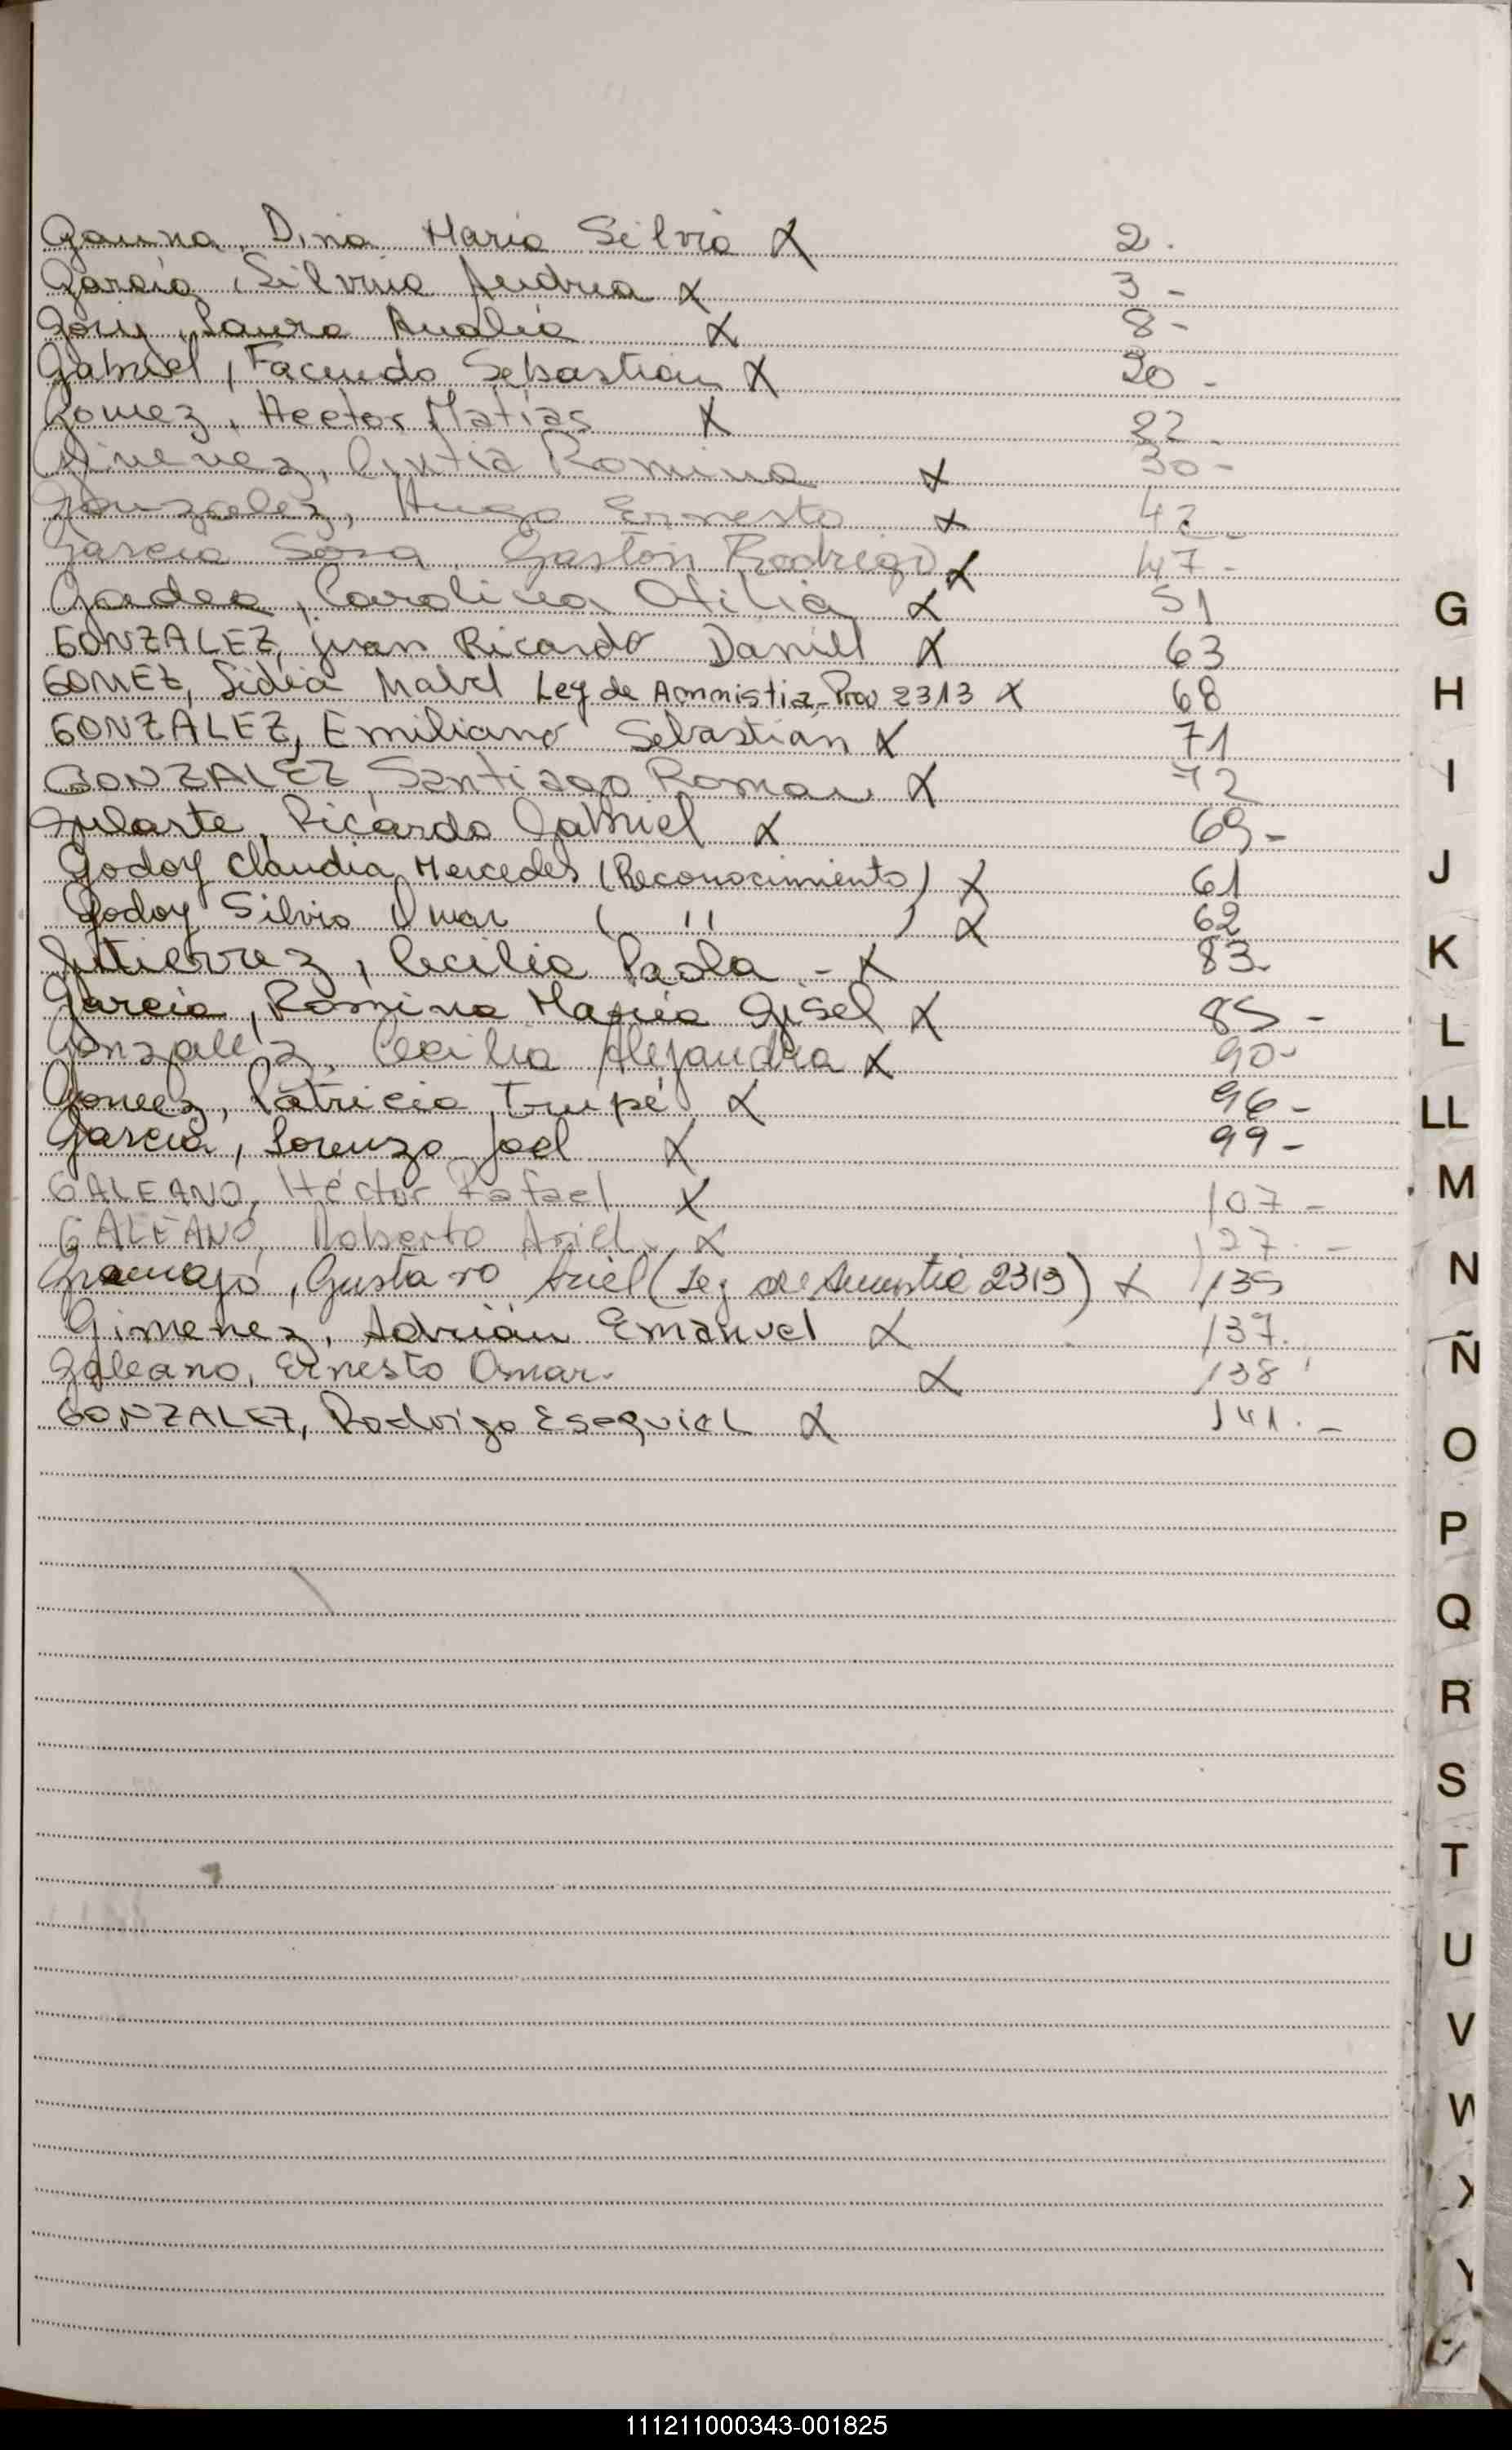 Gauna, Dina Maria Silvia X 2.
Garcia, Silvina Andrea X 3 -
Gory, Laura Analia X 8 -
Gabriel, Facundo Sebastian X 20 -
Gomez, Hector Matias X 22 -
Gimenez, Cintia Romina X 30 -
Gonzalez, Hugo Ernesto X 42 -
Garcia Sosa, Gastón Rodrigo X 47 -
Gadea, Carolina Otilia X 51
GONZALEZ, Juan Ricardo Daniel X 63
GOMEZ, Lidia Mabel Ley de Amnistia Prov 2313 X 68
GONZALEZ, Emiliano Sebastian X 71
GONZALEZ, Santiago Roman X 72
Gularte, Ricardo Gabriel X 69 -
Godoy Claudia Mercedes (Reconocimiento) X 61
Godoy Silvio Omar ( '' ) X 62
Gutierrez, Cecilia Paola - X 83.
Garcia, Romina Maria Gisel X 85 -
Gonzalez, Cecilia Alejandra X 90 -
Gomez, Patricia X 96 -
Garcia, Lorenzo Joel X 99 -
GALEANO, Héctor Rafael X 107 -
GALEANO, Roberto Ariel X 127. -
Gramajo, Gustavo Ariel (Ley de Amnistia 2313) X 135
Gimenez, Adrián Emanuel X 137.
Galeano, Ernesto Omar. X 138
GONZALEZ, Rodrigo Esequiel X 141. -
G
H
I
J
K
L
LL
M
N
Ñ
O
P
Q
R
S
T
U
V
W
X
Y
111211000343-001825